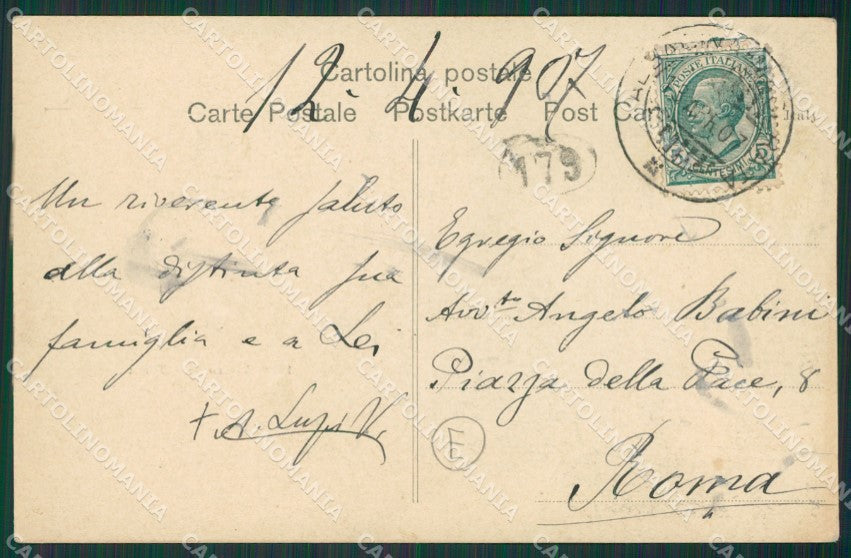 12 - 4 - 907
Cartolina postale
Carte Postale Postkarte Post Car
POSTE ITALIANE
179
Un riverente saluto
alla distinta sua
famiglia e a Lei
+ A. Lupi V.
Egregio Signore
Avv.to Angelo Babini
Piazza della Pace, 8
Roma
CARTOLINOMANIA